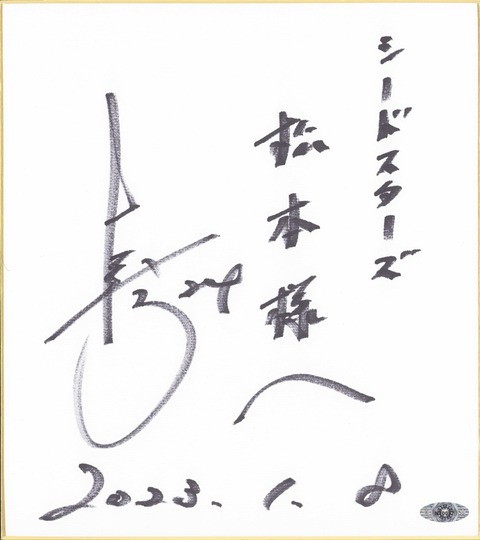 シードスターズ
松本様
へ
24
2023.1.8